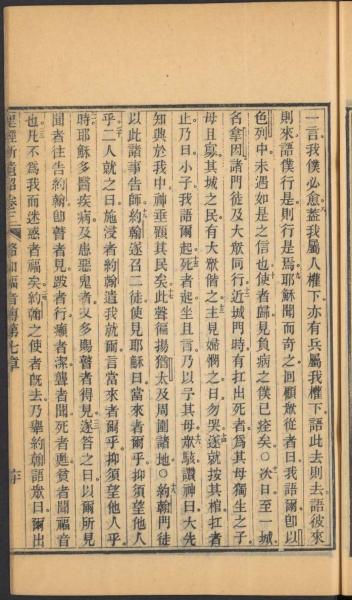 一言我僕必愈蓋我屬人權下亦有兵屬我權下語此去則去語彼來
則來語僕行是則行是焉耶穌聞而奇之回顧眾從者曰我語爾卽以
色列中未遇如是之信也使者歸見負病之僕已痊矣○次日至一城
名拿因諸門徒及大眾同行近城門時有扛出死者爲其母獨生之子
母且寡其城之民有大眾偕之主見婦憫之曰勿哭遂就按其棺扛者
止乃曰小子我語爾起死者起坐且言乃以子其母眾駭讚神曰大先
知興於我中神垂顧其民矣此聲徧揚猶太及周圍諸地○約翰門徒
以此諸事告師約翰遂召二徒使見耶穌曰當來者爾乎抑須望他人
乎二人就之曰施浸者約翰遣我就爾言當來者爾乎抑須望他人乎
時耶穌多醫疾病及患惡鬼者又多賜瞽者得見遂答之曰以爾所見
聞者往告約翰卽瞽者見跛者行癩者潔聾者聞死者甦貧者聞福音
也凡不爲我而迷惑者福矣約翰之使者旣去乃舉約翰語眾曰爾出
聖經新遺詔 卷三 路加福音傳第七章